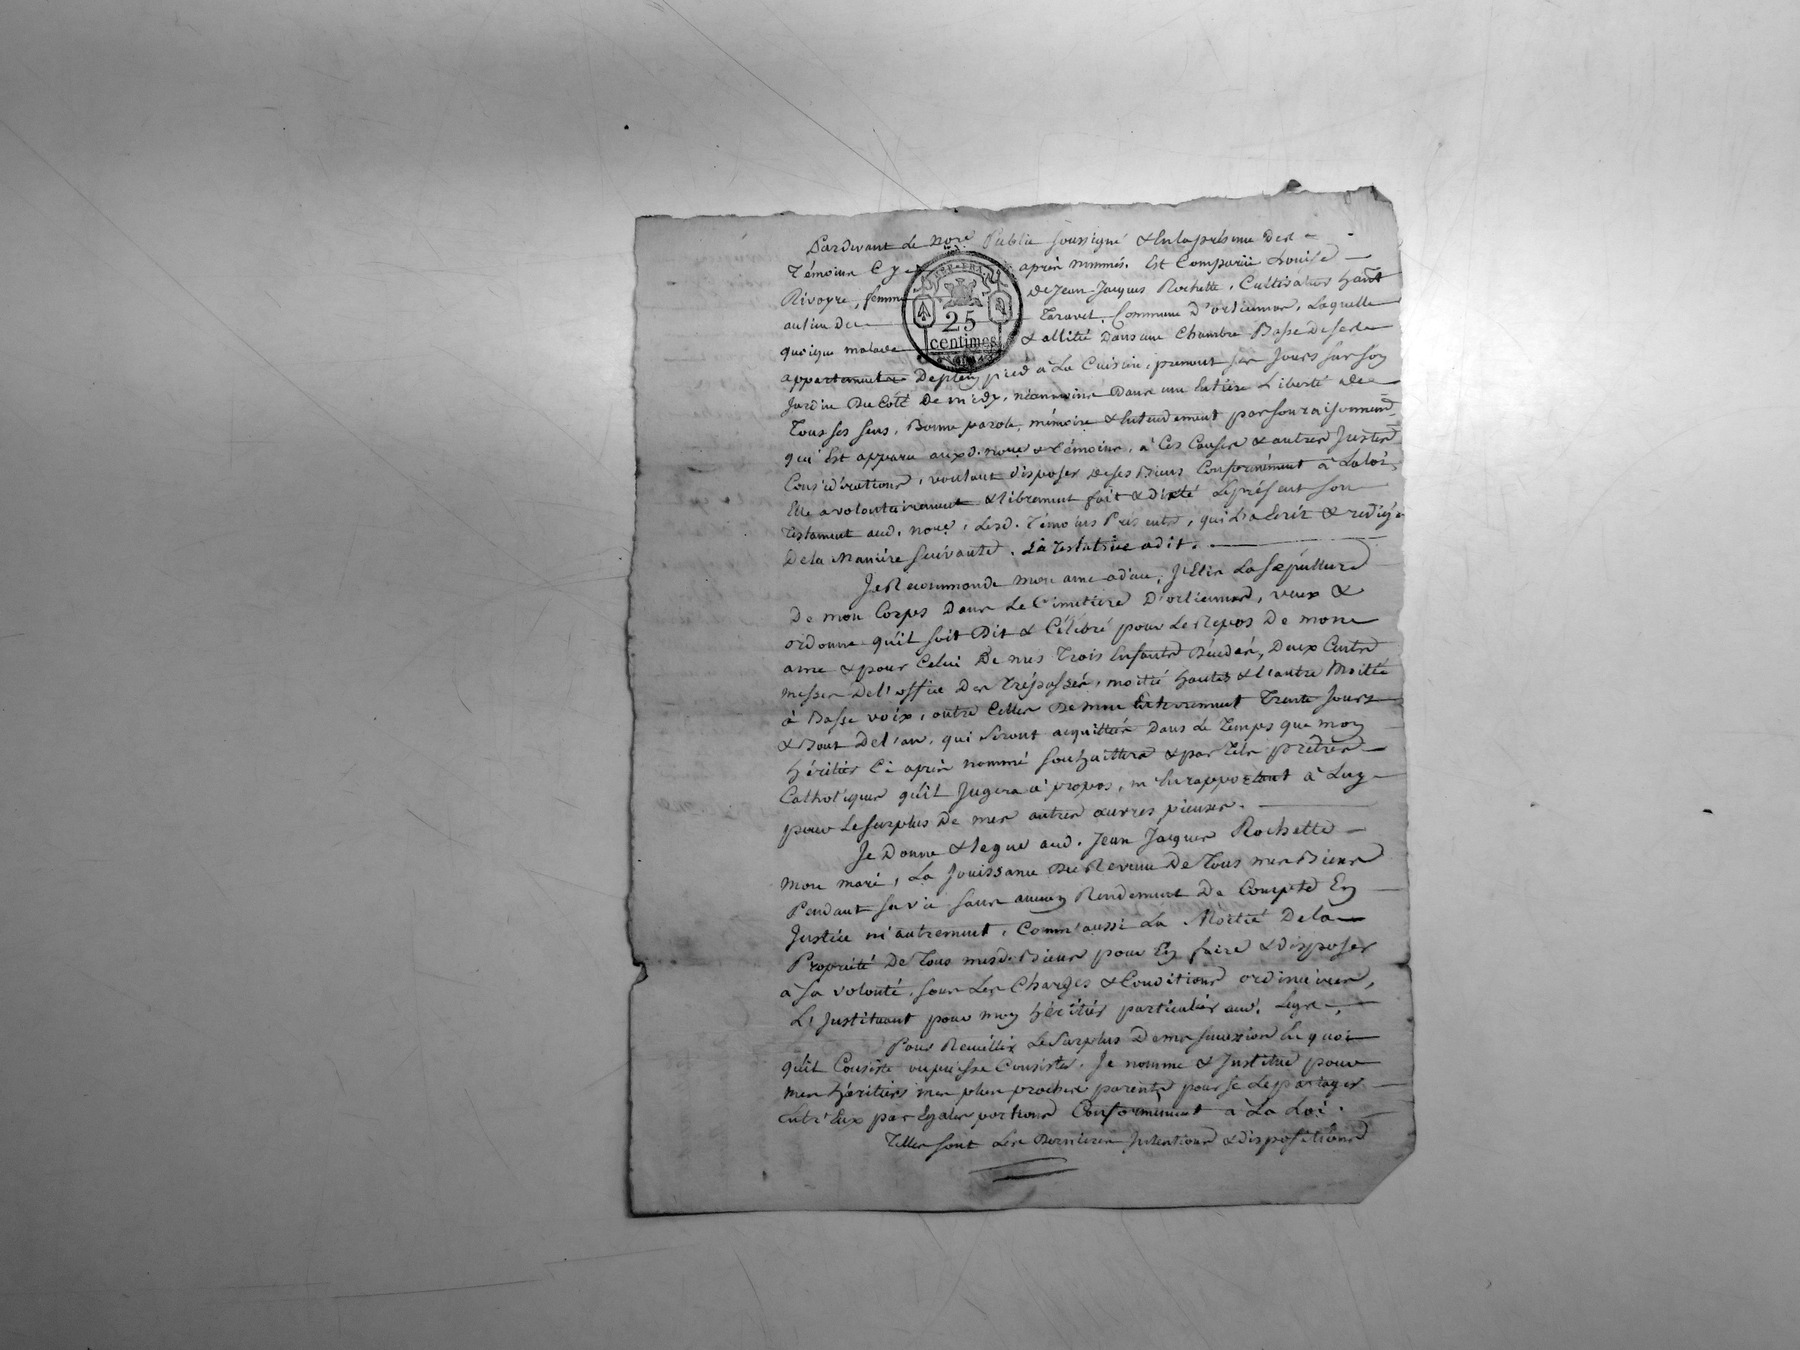 Pardevant le nore Public soussigné & En la présence des
Témoins Cy après nommés. Est Comparüe Louise
Rivoyre, femme de Jean-Jacques Rochette, Cultivateur habt
au lieu de Taravel, Commune d'orliennas, Laquelle
quoique malade & allitée dans une Chambre Basse de ses
appartements De plein pied à La Cuisine, prenant ses Jours sur son
Jardin Du Coté De midy, néanmoins Dans une Entière Liberté de
Tous ses sens, Bonne parole, mémoire & Entendement par son raisonnement
qui Est apparu auxd. nore & témoins, à Ces Causes & autres Justes
Considérations, voulant disposer de ses Biens Conformément à La loi,
Elle a volontairement & librement fait & dicté Le présent son
testament aud. nore, Lesd. Témoins Présents, qui L'a Ecrit & redigé
De la Manière suivante. La testatrice a dit.
Je Recommande mon ame a dieu, J'Elis La sépulture
De mon Corps Dans Le Cimetière D'orliennas, veux &
ordonne qu'il soit Dit & Célébré pour Le Repos De mon
ame & pour Celui De mes Trois Enfants Décédés, Deux Cents
messes De l'office Des Trépassés, moitié hautes & l'autre Moitié
à Basse voix, outre Celles De mon Enterrement Trente Jours
& Bout De l'an, qui seront acquittées Dans Le Temps que mon
héritier Ci après nommé souhaittera & par Tels prêtres
Catholiques qu'il Jugera à propos, m'En rapportant à Luy
pour Le surplus De mes autres œuvres pieuses.
Je Donne & legue aud. Jean Jacques Rochette
mon mari, La Jouissance Du Revenu De Tous mes Biens
Pendant sa vie sans aucun Rendement De Compte En
Justice ni autrement, Comm'aussi La Moitié De la
Propriété De Tous mesd. Biens pour En faire & disposer
à sa volonté, sous Les Charges & Conditions ordinaires,
L'Instituant pour mon héritier particulier aud. Legs.
Pour Recueillir Le Surplus De ma succession En quoi
qu'il Consiste ou puisse Consister, Je nomme & Institue pour
mes héritiers mes plus proches parents pour se Le partager
Entr'Eux par Egales portions Conformément à La Loi.
Telles sont Les Dernières Intentions & dispositions
REP. FRA.
25
centimes